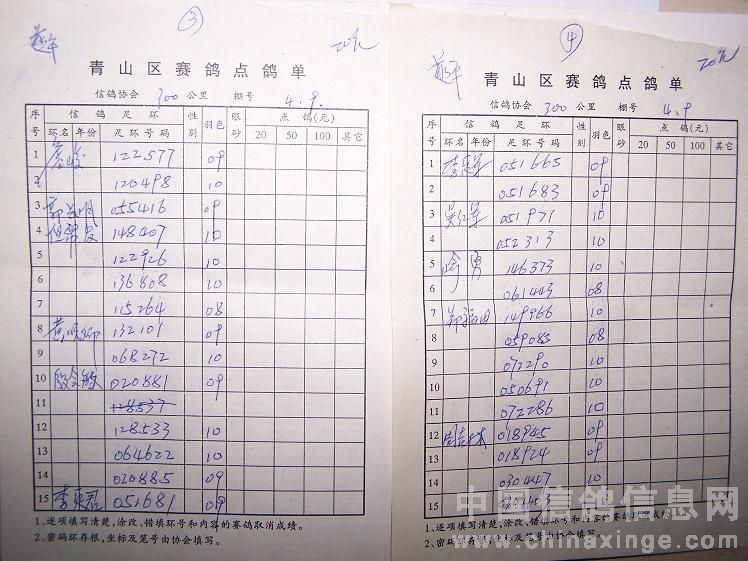 ③
20元
青山区赛鸽点鸽单
信鸽协会 300 公里 棚号 4.9.
序号 信鸽足环 性别 羽色 眼砂 点鸽(元)
环名 年份 足环号码 20 50 100 其它
1 122577 09
2 120498 10
3 055416 09
4 148407 10
5 122926 10
6 136808 10
7 115264 08
8 132101 09
9 068272 10
10 020881 09
11 128537
12 128533 10
13 064622 10
14 020885 09
15 051681 09
1、逐项填写清楚,涂改、错填环号和内容的赛鸽取消成绩。
2、密码环存根,坐标及笔号由协会填写。
④
20元
青山区赛鸽点鸽单
信鸽协会 300 公里 棚号 4.9
序号 信鸽足环 性别 羽色 眼砂 点鸽(元)
环名 年份 足环号码 20 50 100 其它
1 051665 09
2 051683 09
3 051971 10
4 052313 10
5 146373 10
6 061443 08
7 149966 10
8 059085 08
9 072290 10
10 050691 10
11 072286 10
12 018945 09
13 018924 09
14 030447 10
15
1、逐项填写清楚,涂改、错填环号和内容的赛鸽取消成绩。
2、密码环存根,坐标及笔号由协会填写。
中国信鸽信息网
www.chinaxinge.com